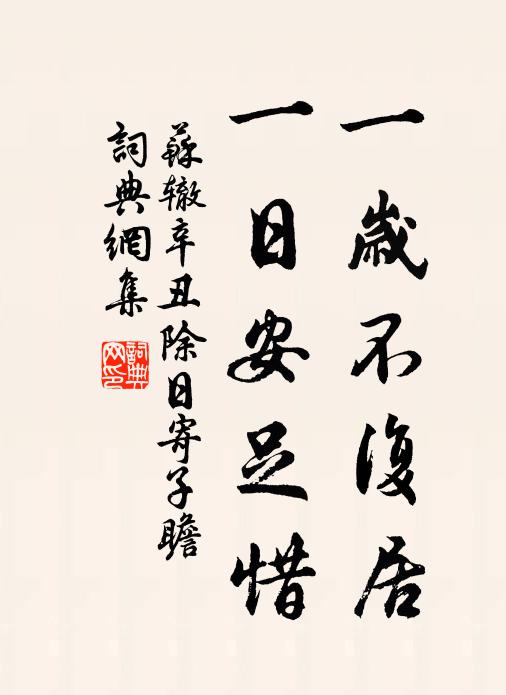 一歲不復居
一日安足惜
蘇辙辛丑除日寄子瞻
詞典網集
詞典
网印